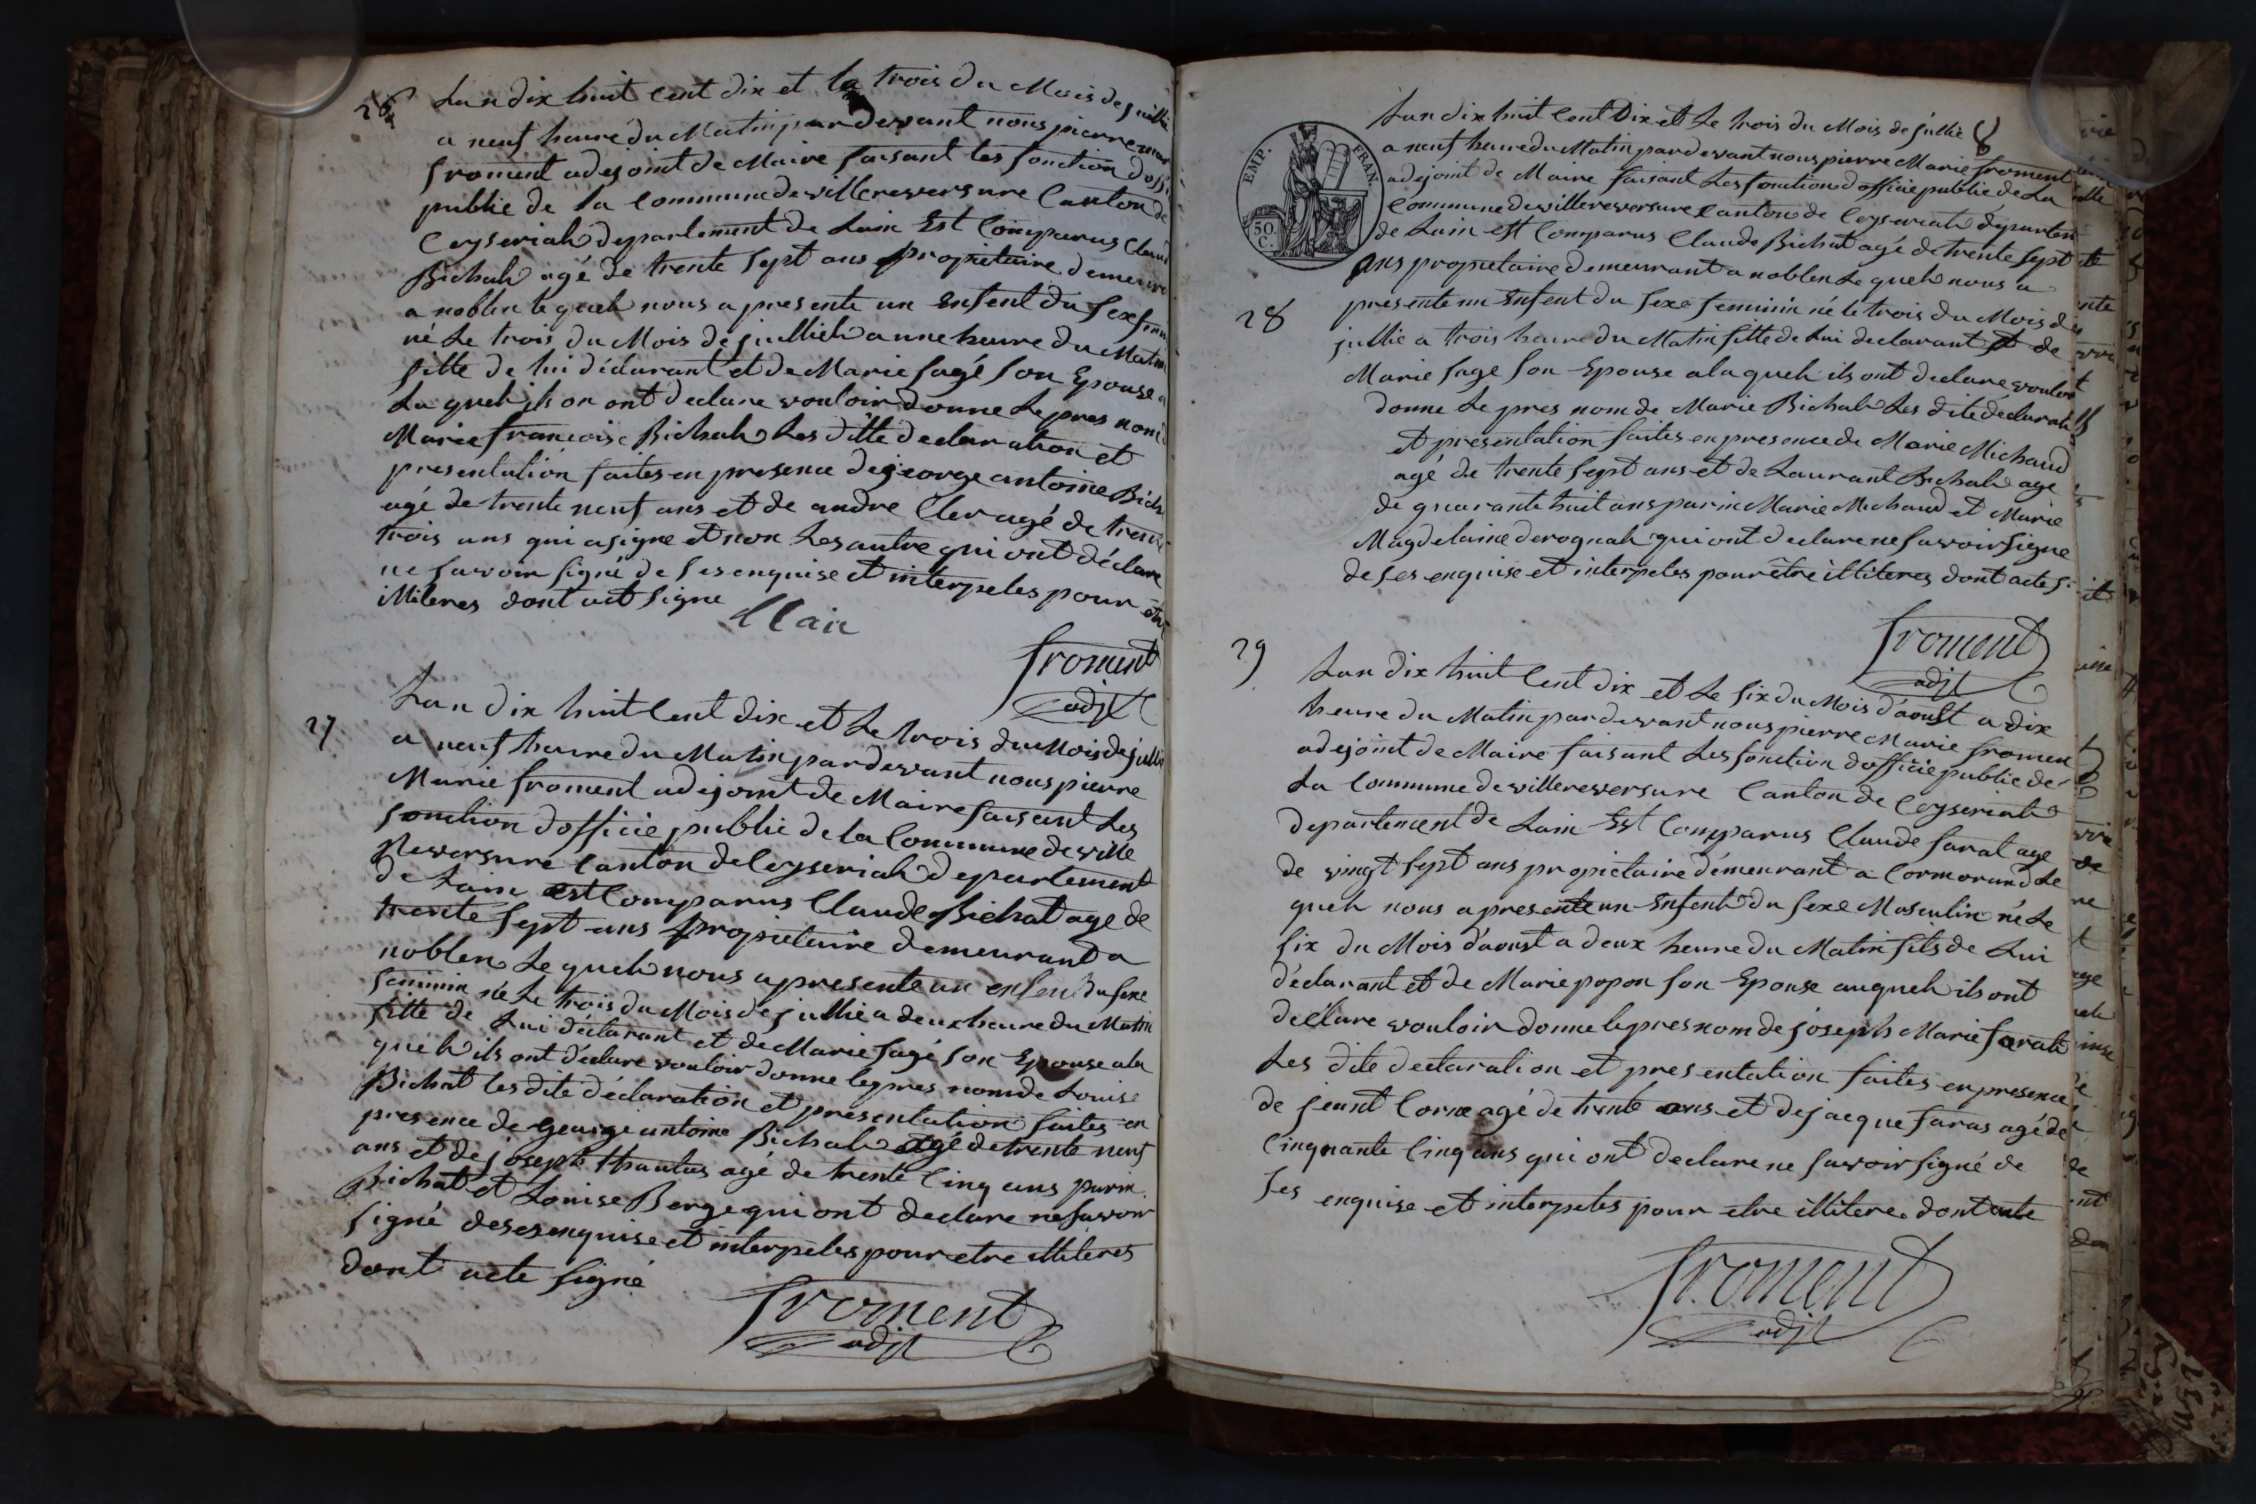 26
Lan dix huit Cent dix et le trois du Mois de juillie
a neuf heure du Matin par devant nous pierre mar
froment adejoint de Maire faisant les fonction doffi
public de la Commune de villereversure Canton de
Ceyseriah departement de Lain Est Comparus Claud
Bichah agé de trente sept ans propriétaire demeure
a noblen le queh nous a presente un Enfent du sex femi
né Le trois du Mois de juillieh a une heure du Matin
fille de lui déclarant et de Marie sagé son Epouse a
La queh ils on ont declare vouloir donne Le pres nom
Marie francoise Bichah Les ditte declaration et
presentation faites en presence de jeorge antoine Bich
agé de trente neuf ans et de andre Cler agé de trente
trois ans qui a signe et non Les autre qui ont déclare
ne savoir signe de ses enquise et interpeles pour etre
illiteres dont act signe
Clair
froment
adjt
27
Lan dix huit Cent dix et Le trois du Mois de jullie
a neuf heure du Matin par devant nous pierre
Marie froment adejoint de Maire faisant Les
fonction dofficie public de la Commune de ville
Reversure Canton de Ceyseriah departement
de Lain est Comparus Claude Bichat age de
trente sept ans propriétaire demeurant a
noblen Le queh nous a presente un enfent du sexe
feminin né Le trois du Mois de jullie a deux heure du Matin
fille de Lui déclarant et de Marie sagé son Epouse a la
queh ils ont déclare vouloir donne le pres nom de Louise
Bichat les dite déclaration et présentation faites en
presence de George antoine Bichah agé de trente neuf
ans et de joseph thantus agé de trente Cinq ans parin
Bichat et Louise Berge qui ont declare ne savoir
signé de ses enquise et interpeles pour etre illiteres
dont acte signé
froment
adjt
EMP. FRAN.
50. C.
Lan dix huit Cent Dix et Le trois du Mois de jullie
a neuf heure du Matin par devant nous pierre Marie froment
adejoint de Maire faisant Les fonction dofficie public de La
Commune de villereversure Canton de Ceyseriah departem
de Lain est Comparus Claude Bichat agé de trente sept
ans propriétaire demeurant a noblen Le queh nous a
28
presente un Enfent du sexe feminin né le trois du Mois de
jullie a trois heure du Matin fille de Lui declarant et de
Marie sage son Epouse a la queh ils ont declare vouloir
donne Le pres nom de Marie Bichah Les dite declarati
et presentation faites en presence de Marie Michaud
agé de trente sept ans et de Laurant Bichah age
de quarante huit ans parin Marie Michaud et Marie
Magdelaine derognah qui ont declare ne savoir signe
de ses enquise et interpeles pour être illiteres dont acte s.
froment
adjt
29
Lan dix huit Cent dix et Le six du Mois d'aoust a dix
heure du Matin par devant nous pierre Marie fromen
adejoint de Maire faisant Les fonction dofficie public de
La Commune de villereversure Canton de Ceyseriah
departement de Lain Est Comparus Claude farat age
de vingt sept ans propriétaire demeurant a Cormorand Le
queh nous a presente un Enfent du sexe Masculin né Le
six du Mois d'aoust a deux heure du Matin fils de Lui
déclarant et de Marie popon son Epouse au queh ils ont
declare vouloir donne le pres nom de joseph Marie farah
Les dite declaration et presentation faites en presence
de jeant Corne agé de trente ans et de jacque faras agé de
Cinquante Cinq ans qui ont declare ne savoir signé de
ses enquise et interpeles pour etre illitere dont acte
froment
adjt